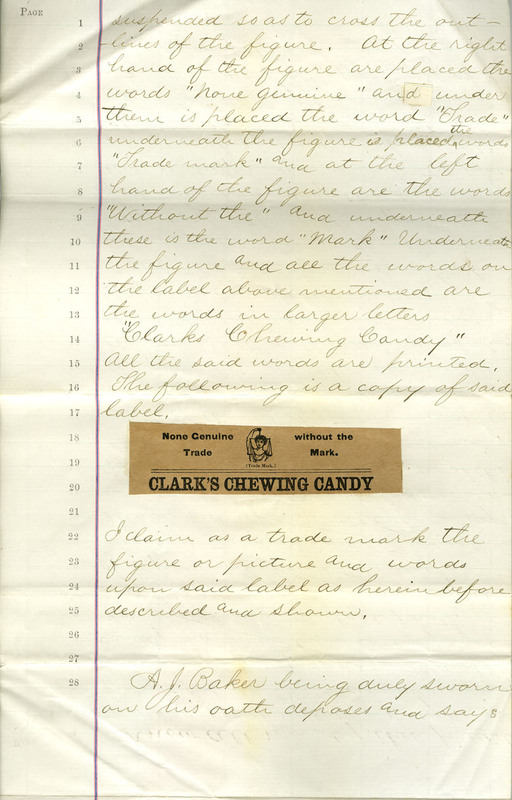 PAGE
1 suspended so as to cross the out-
2 lines of the figure. At the right
3 hand of the figure are placed the
4 words "None genuine" and under
5 them is placed the word "Trade"
6 underneath the figure is placed the words
7 "Trade mark" and at the left
8 hand of the figure are the words
9 "Without the" and underneath
10 these is the word "Mark" Underneath
11 the figure and all the words on
12 the label above mentioned are
13 the words in larger letters
14 "Clarks Chewing Candy"
15 All the said words are printed.
16 The following is a copy of said
17 label.
18 None Genuine without the
19 Trade Mark.
(Trade Mark.)
20 CLARK'S CHEWING CANDY
21
22 I claim as a trade mark the
23 figure or picture and words
24 upon said label as herein before
25 described and shown.
26
27
28 A. J. Baker being duly sworn
on his oath deposes and says